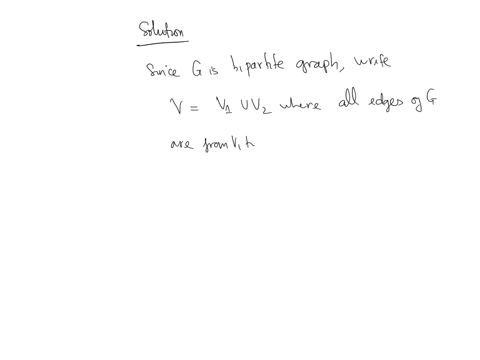 Solution
Since G is bipartite graph, write
V = V1 ∪ V2 where all edges of G
are from V1 t